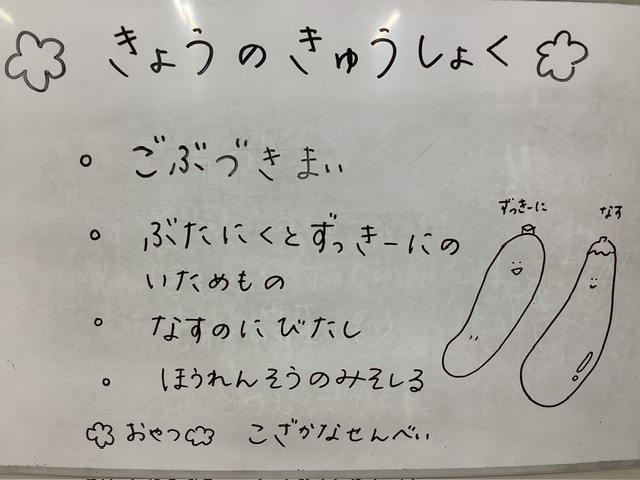 きょうのきゅうしょく
ごぶづきまい
ぶたにくとずっきーにの
いためもの
なすのにびたし
ほうれんそうのみそしる
おやつ こざかなせんべい
ずっきーに
なす